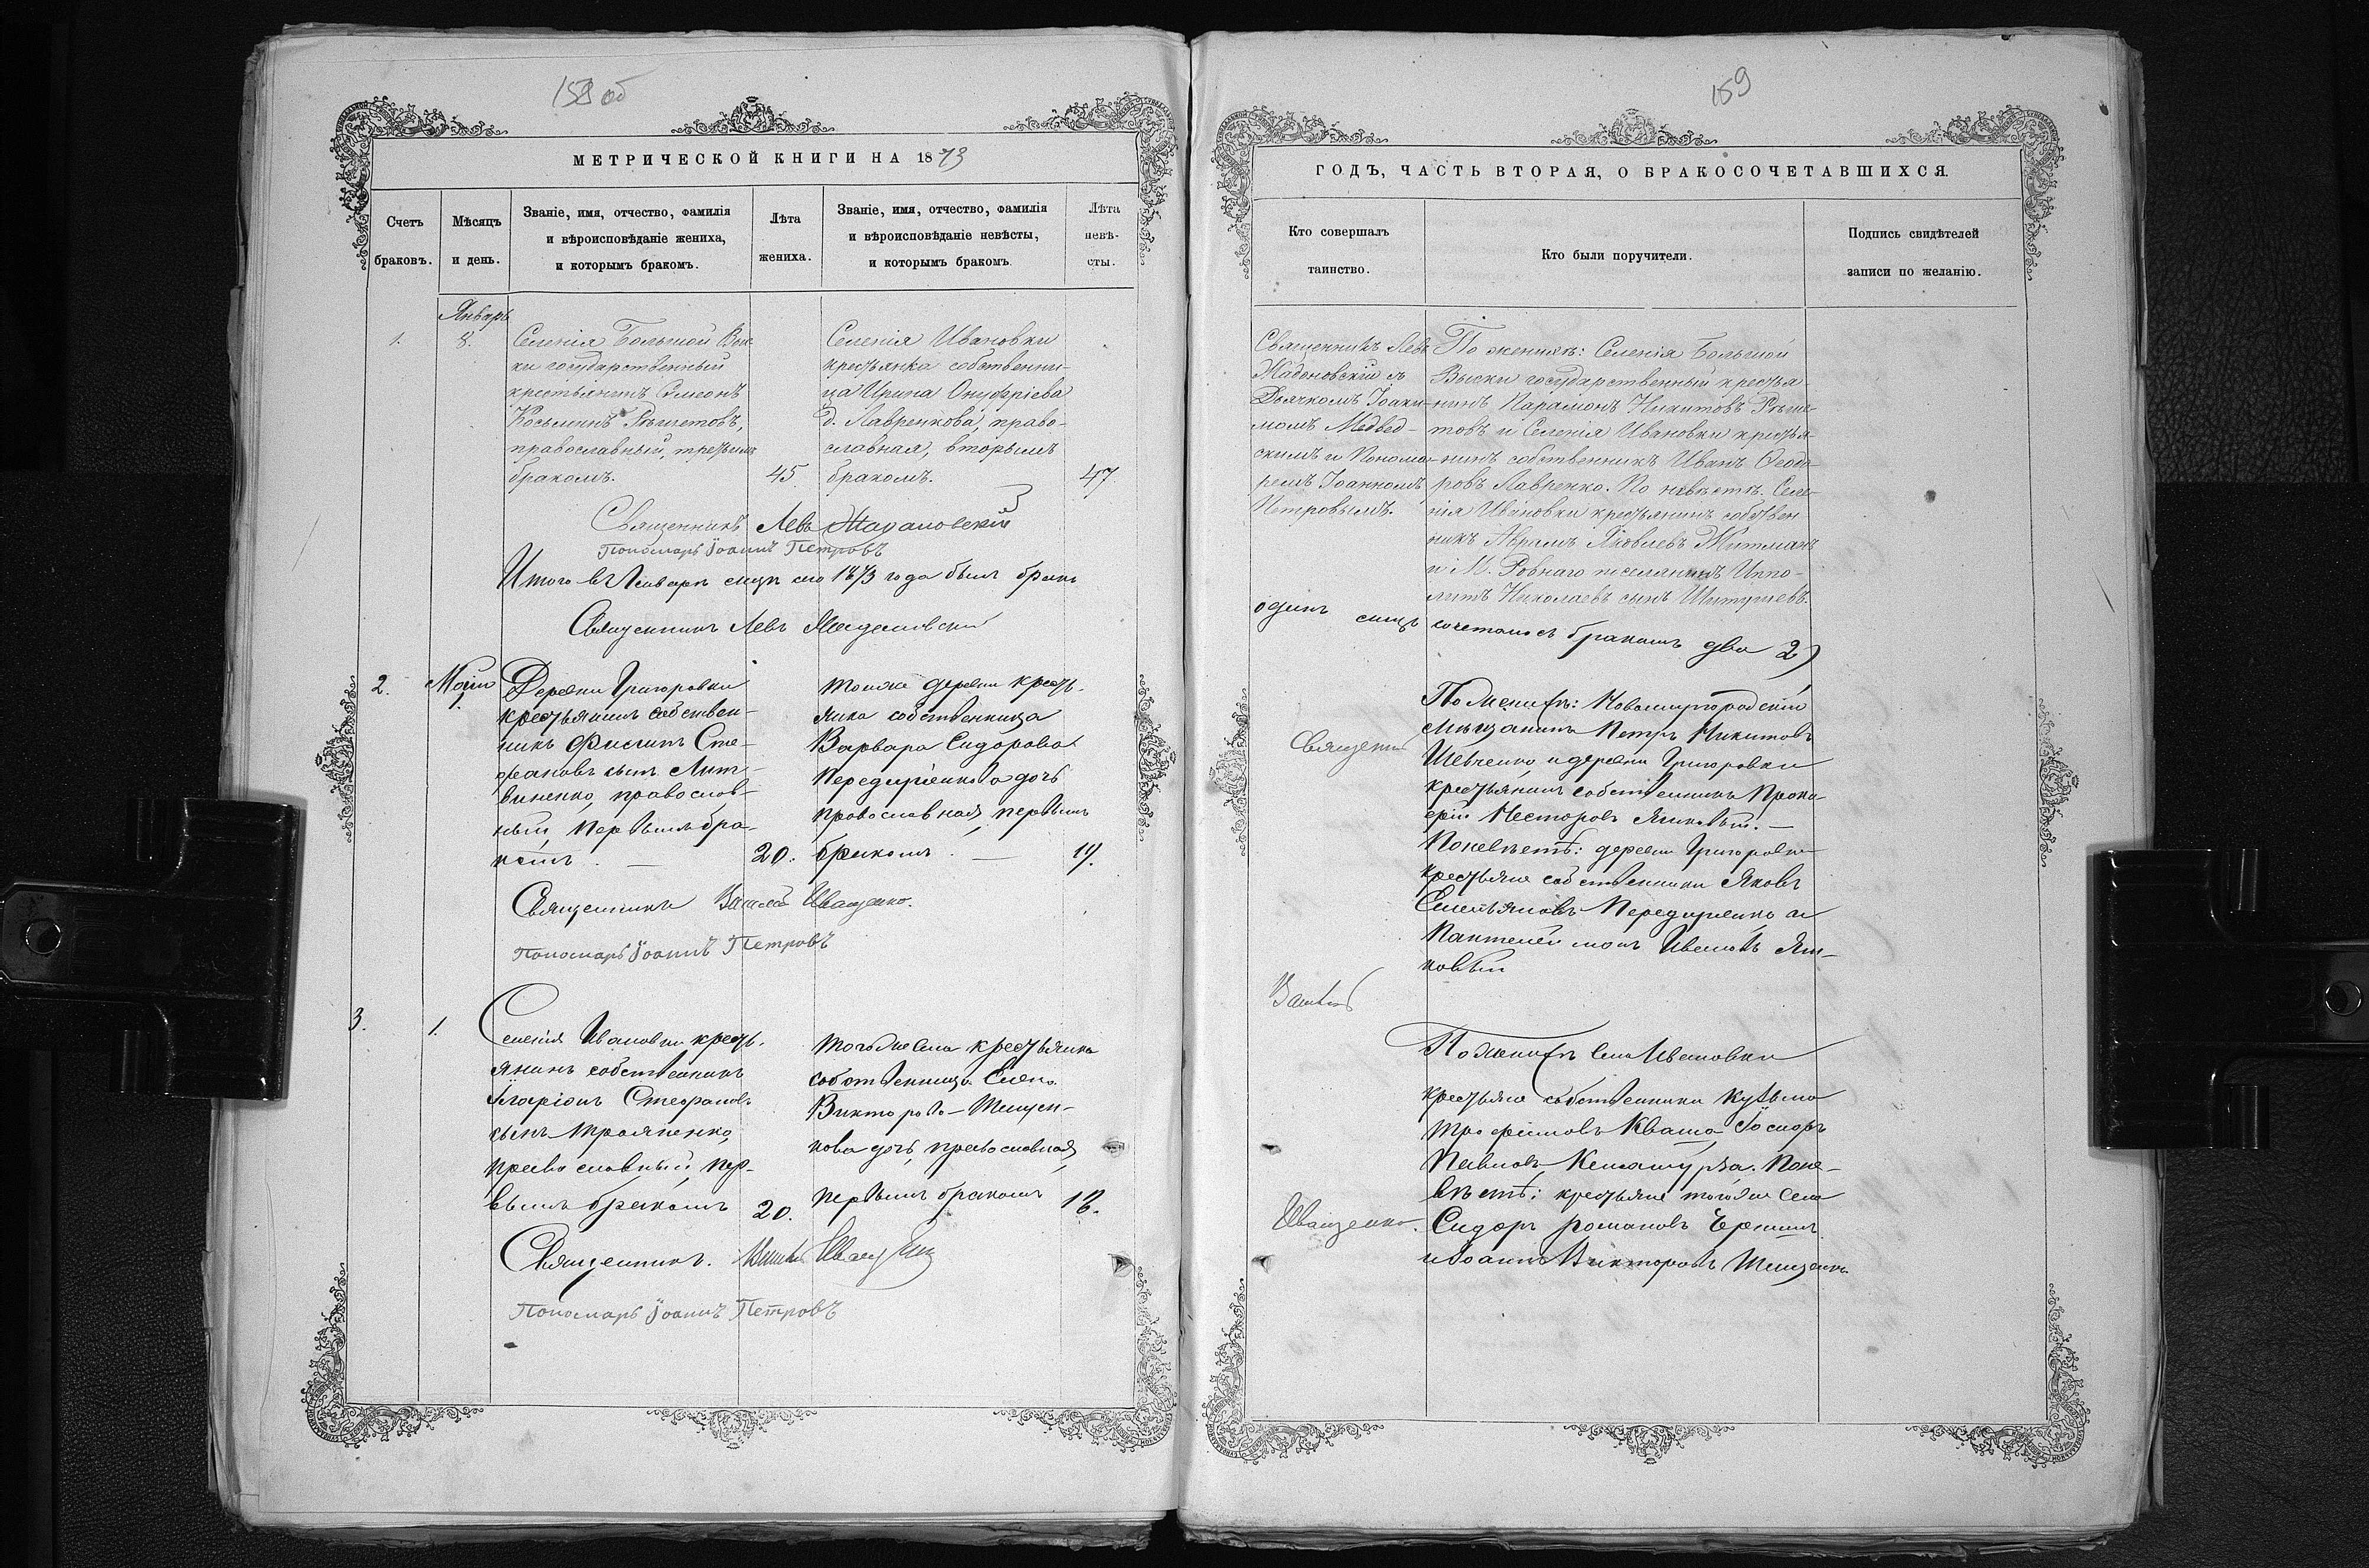 158 об
МЕТРИЧЕСКОЙ КНИГИ НА 1873
Счетъ браковъ.
Мѣсяцъ и день.
Званіе, имя, отчество, фамилія
и вѣроисповѣданіе жениха,
и которымъ бракомъ.
Лѣта жениха.
Званіе, имя, отчество, фамилія
и вѣроисповѣданіе невѣсты,
и которымъ бракомъ.
Лѣта невѣ-
сты.
Январь
1.
8.
Селенія Большой Выс-
ки государственный
крестьянинъ Симеонъ
Косьминъ Рѣшетовъ,
православный, третьимъ
бракомъ.
45.
Селенія Ивановки
крестьянка собственни-
ца Ирина Онуфріева
д. Лавренкова, право-
славная, вторымъ
бракомъ.
47.
Священникъ Левъ
Пономарь Іоаннъ Петровъ
Итого въ Январѣ сего 1873 года былъ бракъ
Священникъ Левъ
2.
Майя
Деревни Григоровки
крестьянинъ собствен-
никъ Филипъ Сте-
фановъ сынъ Лит-
виненко, православ-
ный, первымъ бра-
комъ. —
20.
тойже деревни кресть-
янка собственница
Варвара Сидорова
Передиріенкова дочь
православная, первымъ
бракомъ. —
19.
Священникъ Иващенко.
Пономарь Іоаннъ Петровъ
3.
1.
Селенія Ивановки кресть-
янинъ собственникъ
Иларіонъ Стефановъ
сынъ Трояненко,
православный, пер-
вымъ бракомъ
20.
тогоже села крестьянка
собственница Елена
Викторова Тещен-
кова дочь, православная,
первымъ бракомъ
18.
Священникъ.
Пономарь Іоаннъ Петровъ
159
ГОДЪ, ЧАСТЬ ВТОРАЯ, О БРАКОСОЧЕТАВШИХСЯ.
Кто совершалъ
таинство.
Кто были поручители.
Подпись свидѣтелей
записи по желанію.
Священникъ Левъ
съ
Дьячкомъ Іоаки-
момъ Медвед-
скимъ и Понома-
ремъ Іоанномъ
Петровымъ.
По женихѣ: Селенія Большой
Выски государственный крестья-
нинъ Парамонъ Никитовъ Рѣше-
товъ и Селенія Ивановки крестья-
нинъ собственникъ Иванъ Ѳеодо-
ровъ Лавренко. По невѣстѣ: Селе-
нія Ивановки крестьянинъ собствен
никъ Аврамъ Яковлевъ
и М. Ровнаго поселянинъ Иппо-
литъ Николаевъ сынъ
одинъ
сочеталось бракомъ два 2)
Священникъ
По женихѣ: Новомиргородскій
мѣщанинъ Петръ Никитовъ
Шевченко и деревни Григоровки
крестьянинъ собственникъ Проко-
фій Несторовъ —
По невѣстѣ: деревни Григоровки
крестьяне собственники Яковъ
Емельяновъ Передиріенко и
Пантелеймонъ Ивановъ
Василій
По женихѣ села Ивановки
крестьяне собственники Кузьма
Трофимовъ Кваша, Іосифъ
Павловъ По не-
вѣстѣ: крестьяне тогоже села
Сидоръ Романовъ
и Іоаннъ Викторовъ Тещенко
Иващенко.